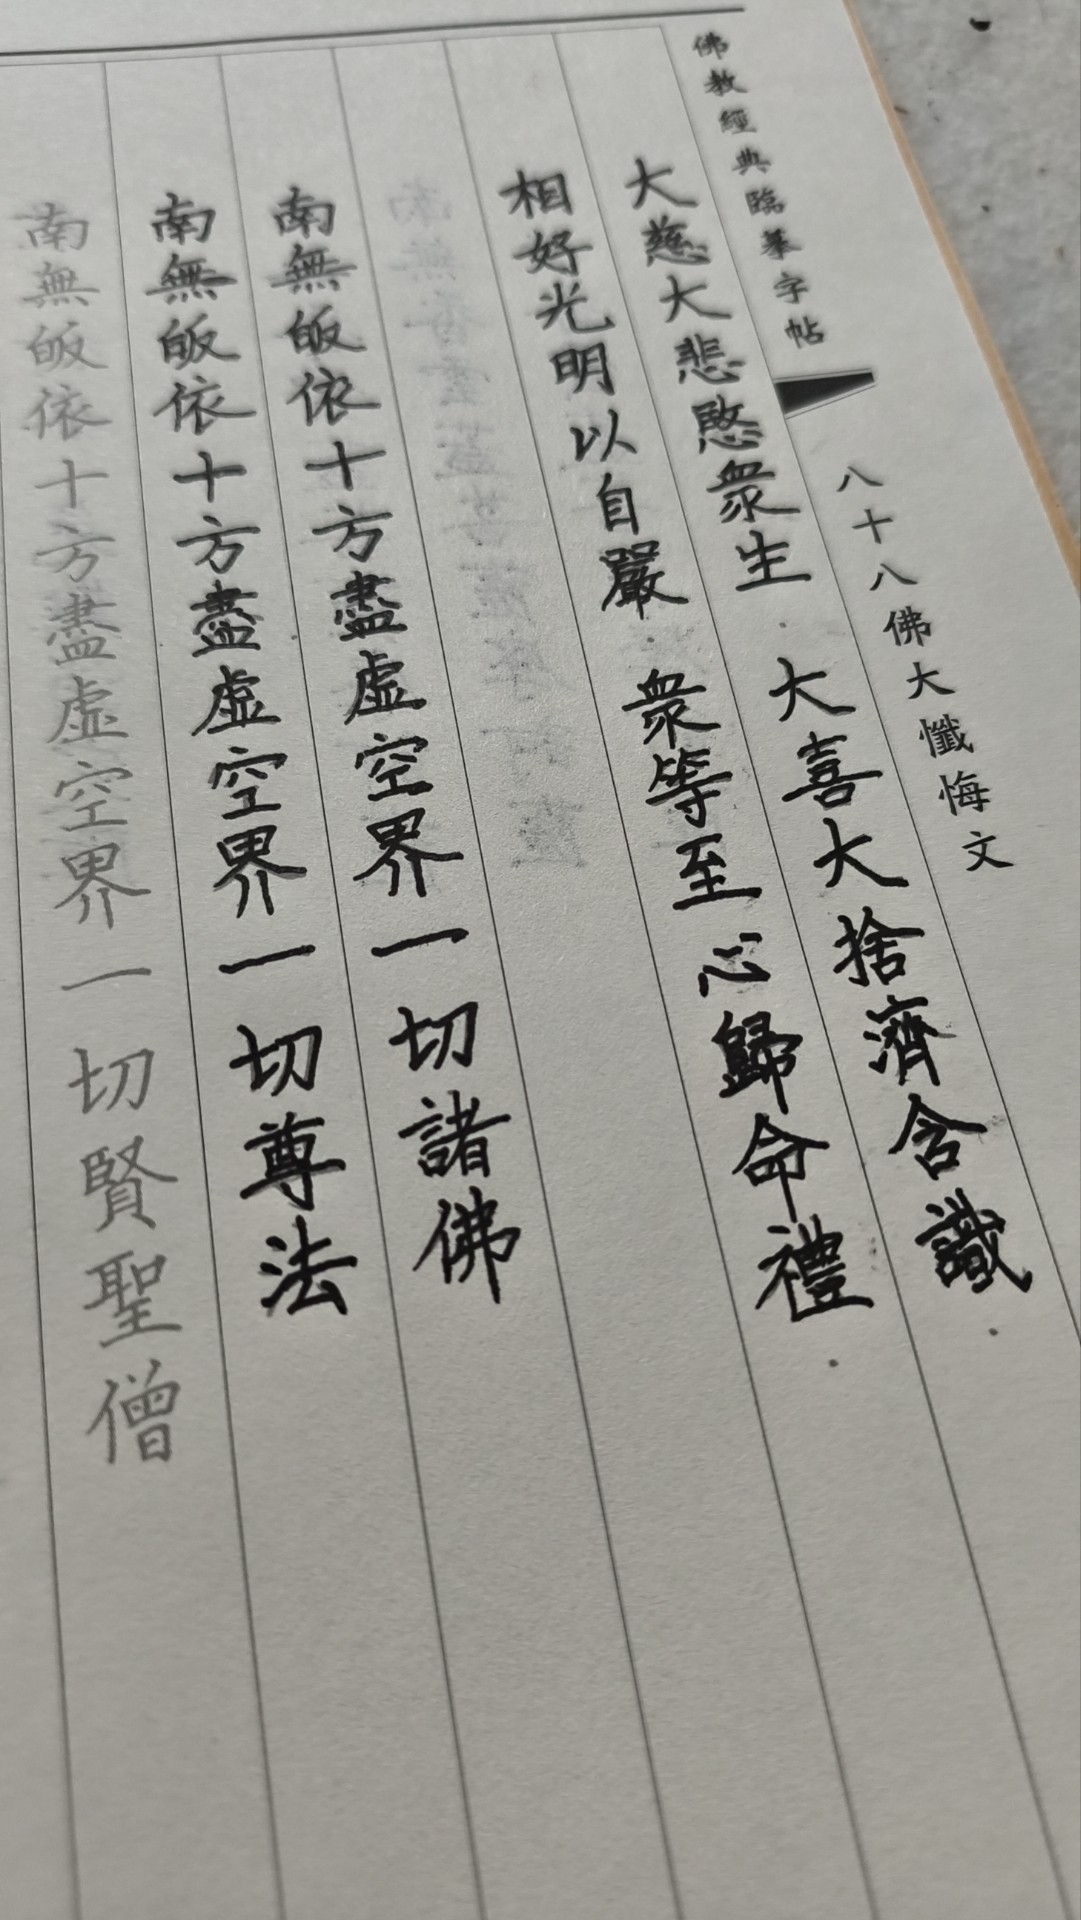 佛教經典臨摹字帖
八十八佛大懺悔文
大慈大悲愍衆生 大喜大捨濟含識
相好光明以自嚴 衆等至心歸命禮
南無皈依十方盡虛空界一切諸佛
南無皈依十方盡虛空界一切尊法
南無皈依十方盡虛空界一切賢聖僧